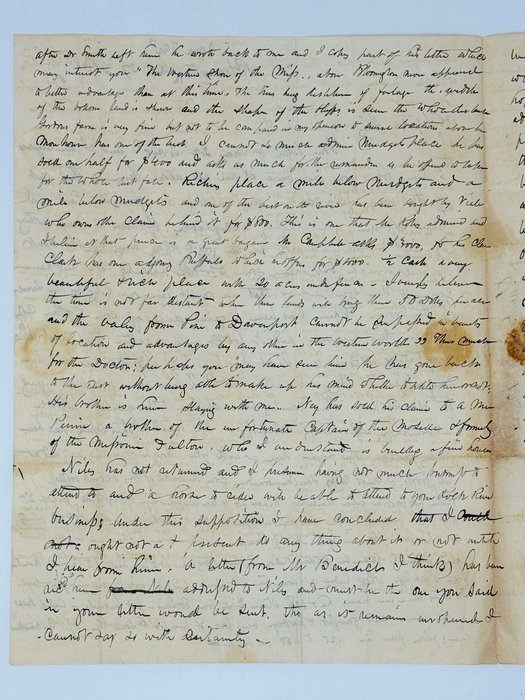 after Dr Smith left here he wrote back to me and I copy part of his letter which
may interest you "The Western Shore of the Miss.. above Bloomington never appeared
to better advantage than at this time. The trees being destitute of foliage the width
of the bottom land is shewn and the shape of the Bluffs is seen the whole distance
farm is very fine but not to be compared in my opinion to several locations above
has one of the best I cannot so much admire Mudgets place he has
sold one half for $ and asks as much for the remainder as he offered to take
for the whole last fall. place a mile below Mudgets and a
mile below Mudgets and one of the best on the river has been bought by Viele
who owns the claim behind it for $800. This is one that He Hokes admired and
I believe at that price is a great bargain Mr Campbell asks $3000, for his claim
Clark has one adjoing Buffalo to which he offers for $1000. ½ cash a very
beautiful & rich place with 20 acres under fence. I surely believe
the time is not far distant when these lands will bring their 50 Dolls per acre
and the valley from Pine to Davenport cannot be surpassed in points
of location and advantages by any other in the western world" Thus much
for the Doctor: perhaps you may have seen him He has gone back
to the East without being able to make up his mind whether to settle here or not.
His brother is here staying with me. Ney has sold his claim to a Mr
Perin a brother of the unfortunate Captain of the Moselle & formerly
of the Fulton, who I understand is building a fine house
Niles has not returned and I presume having not much business to
attend to and a horse to ride will be able to attend to your Rock River
business; under this supposition I have concluded that I could
not ought not at present do any thing about it or not until
I hear from him. A letter (from Mr Benedict I think) has been
recd here addressed to Niles and must be the one you said
in your letter would be sent, tho as it remains unopened I
cannot say so with certainty –